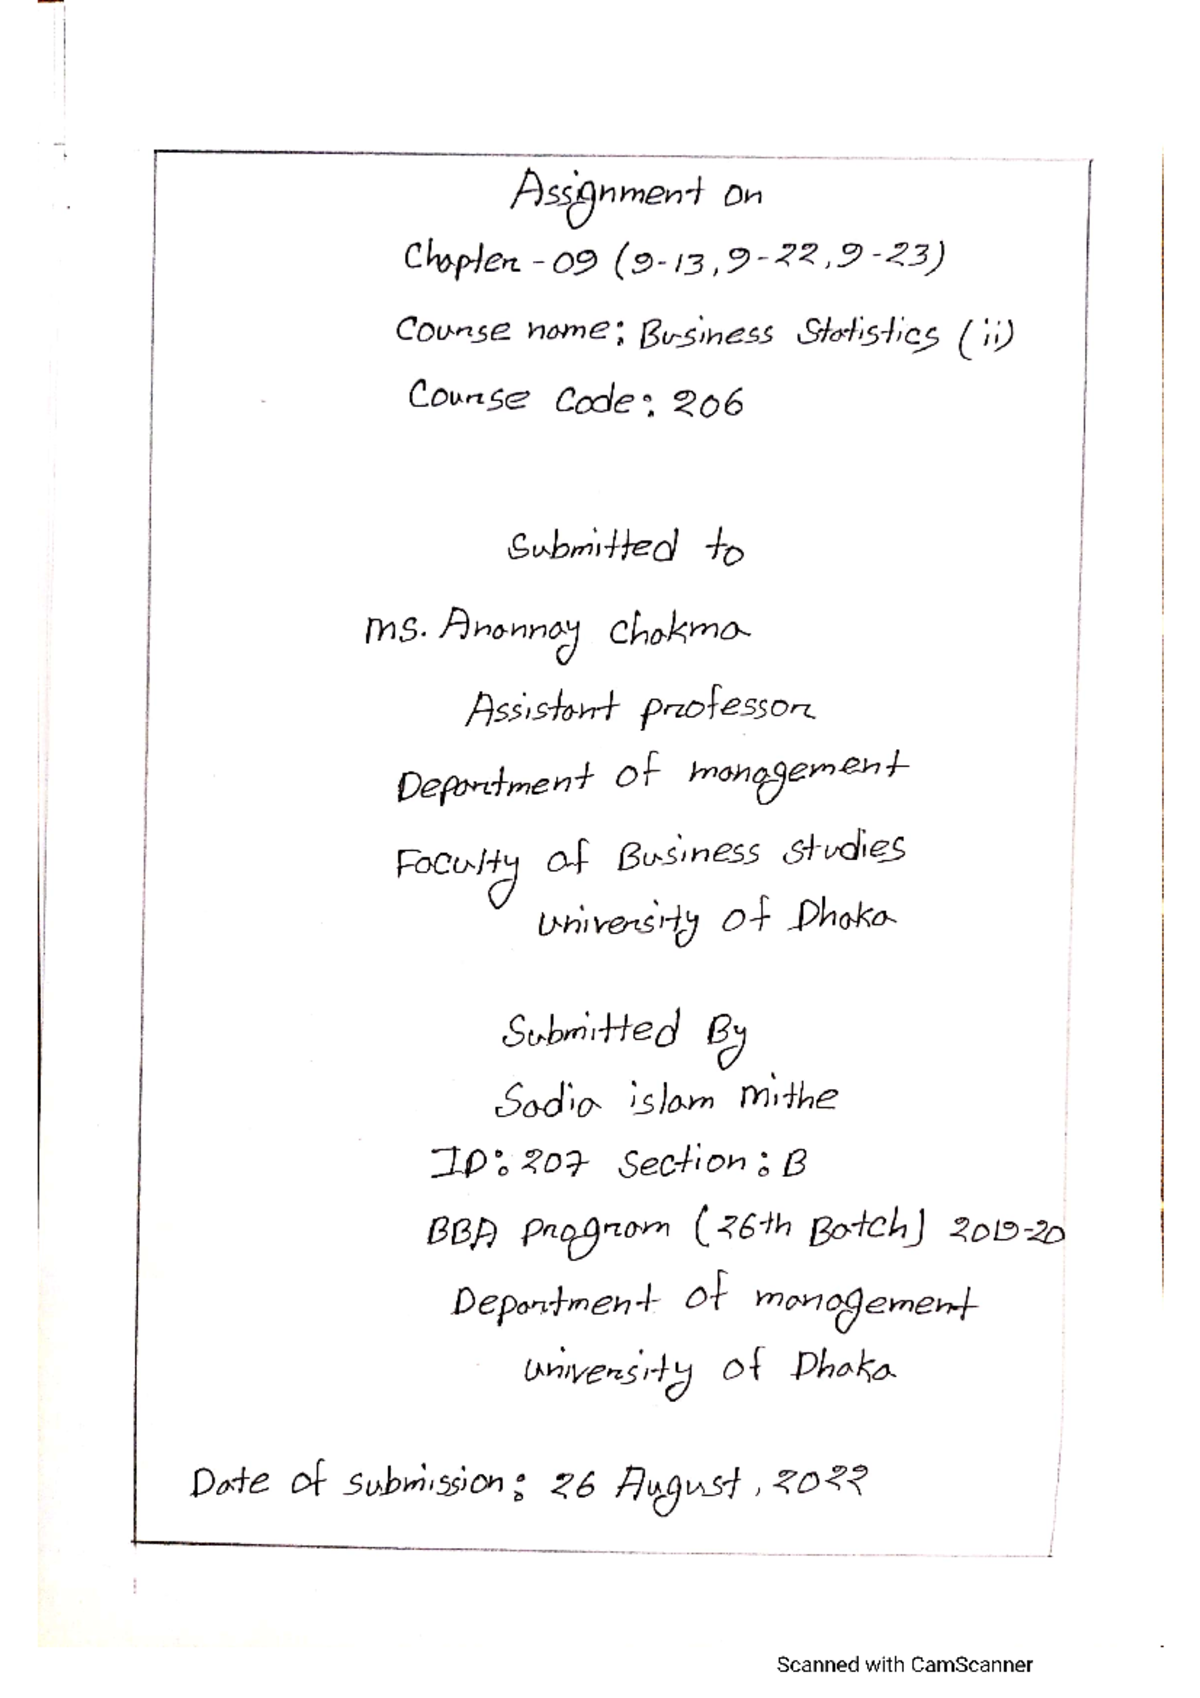 Assignment on
Chapter - 09 (9-13, 9-22, 9-23)
Course name: Business Statistics (ii)
Course Code: 206
Submitted to
Ms. Anannay Chakma
Assistant professor
Department of management
Faculty of Business studies
University of Dhaka
Submitted By
Sadia islam mithe
ID: 207 Section: B
BBA program (26th Batch) 2019-20
Department of management
University of Dhaka
Date of submission: 26 August, 2022
Scanned with CamScanner